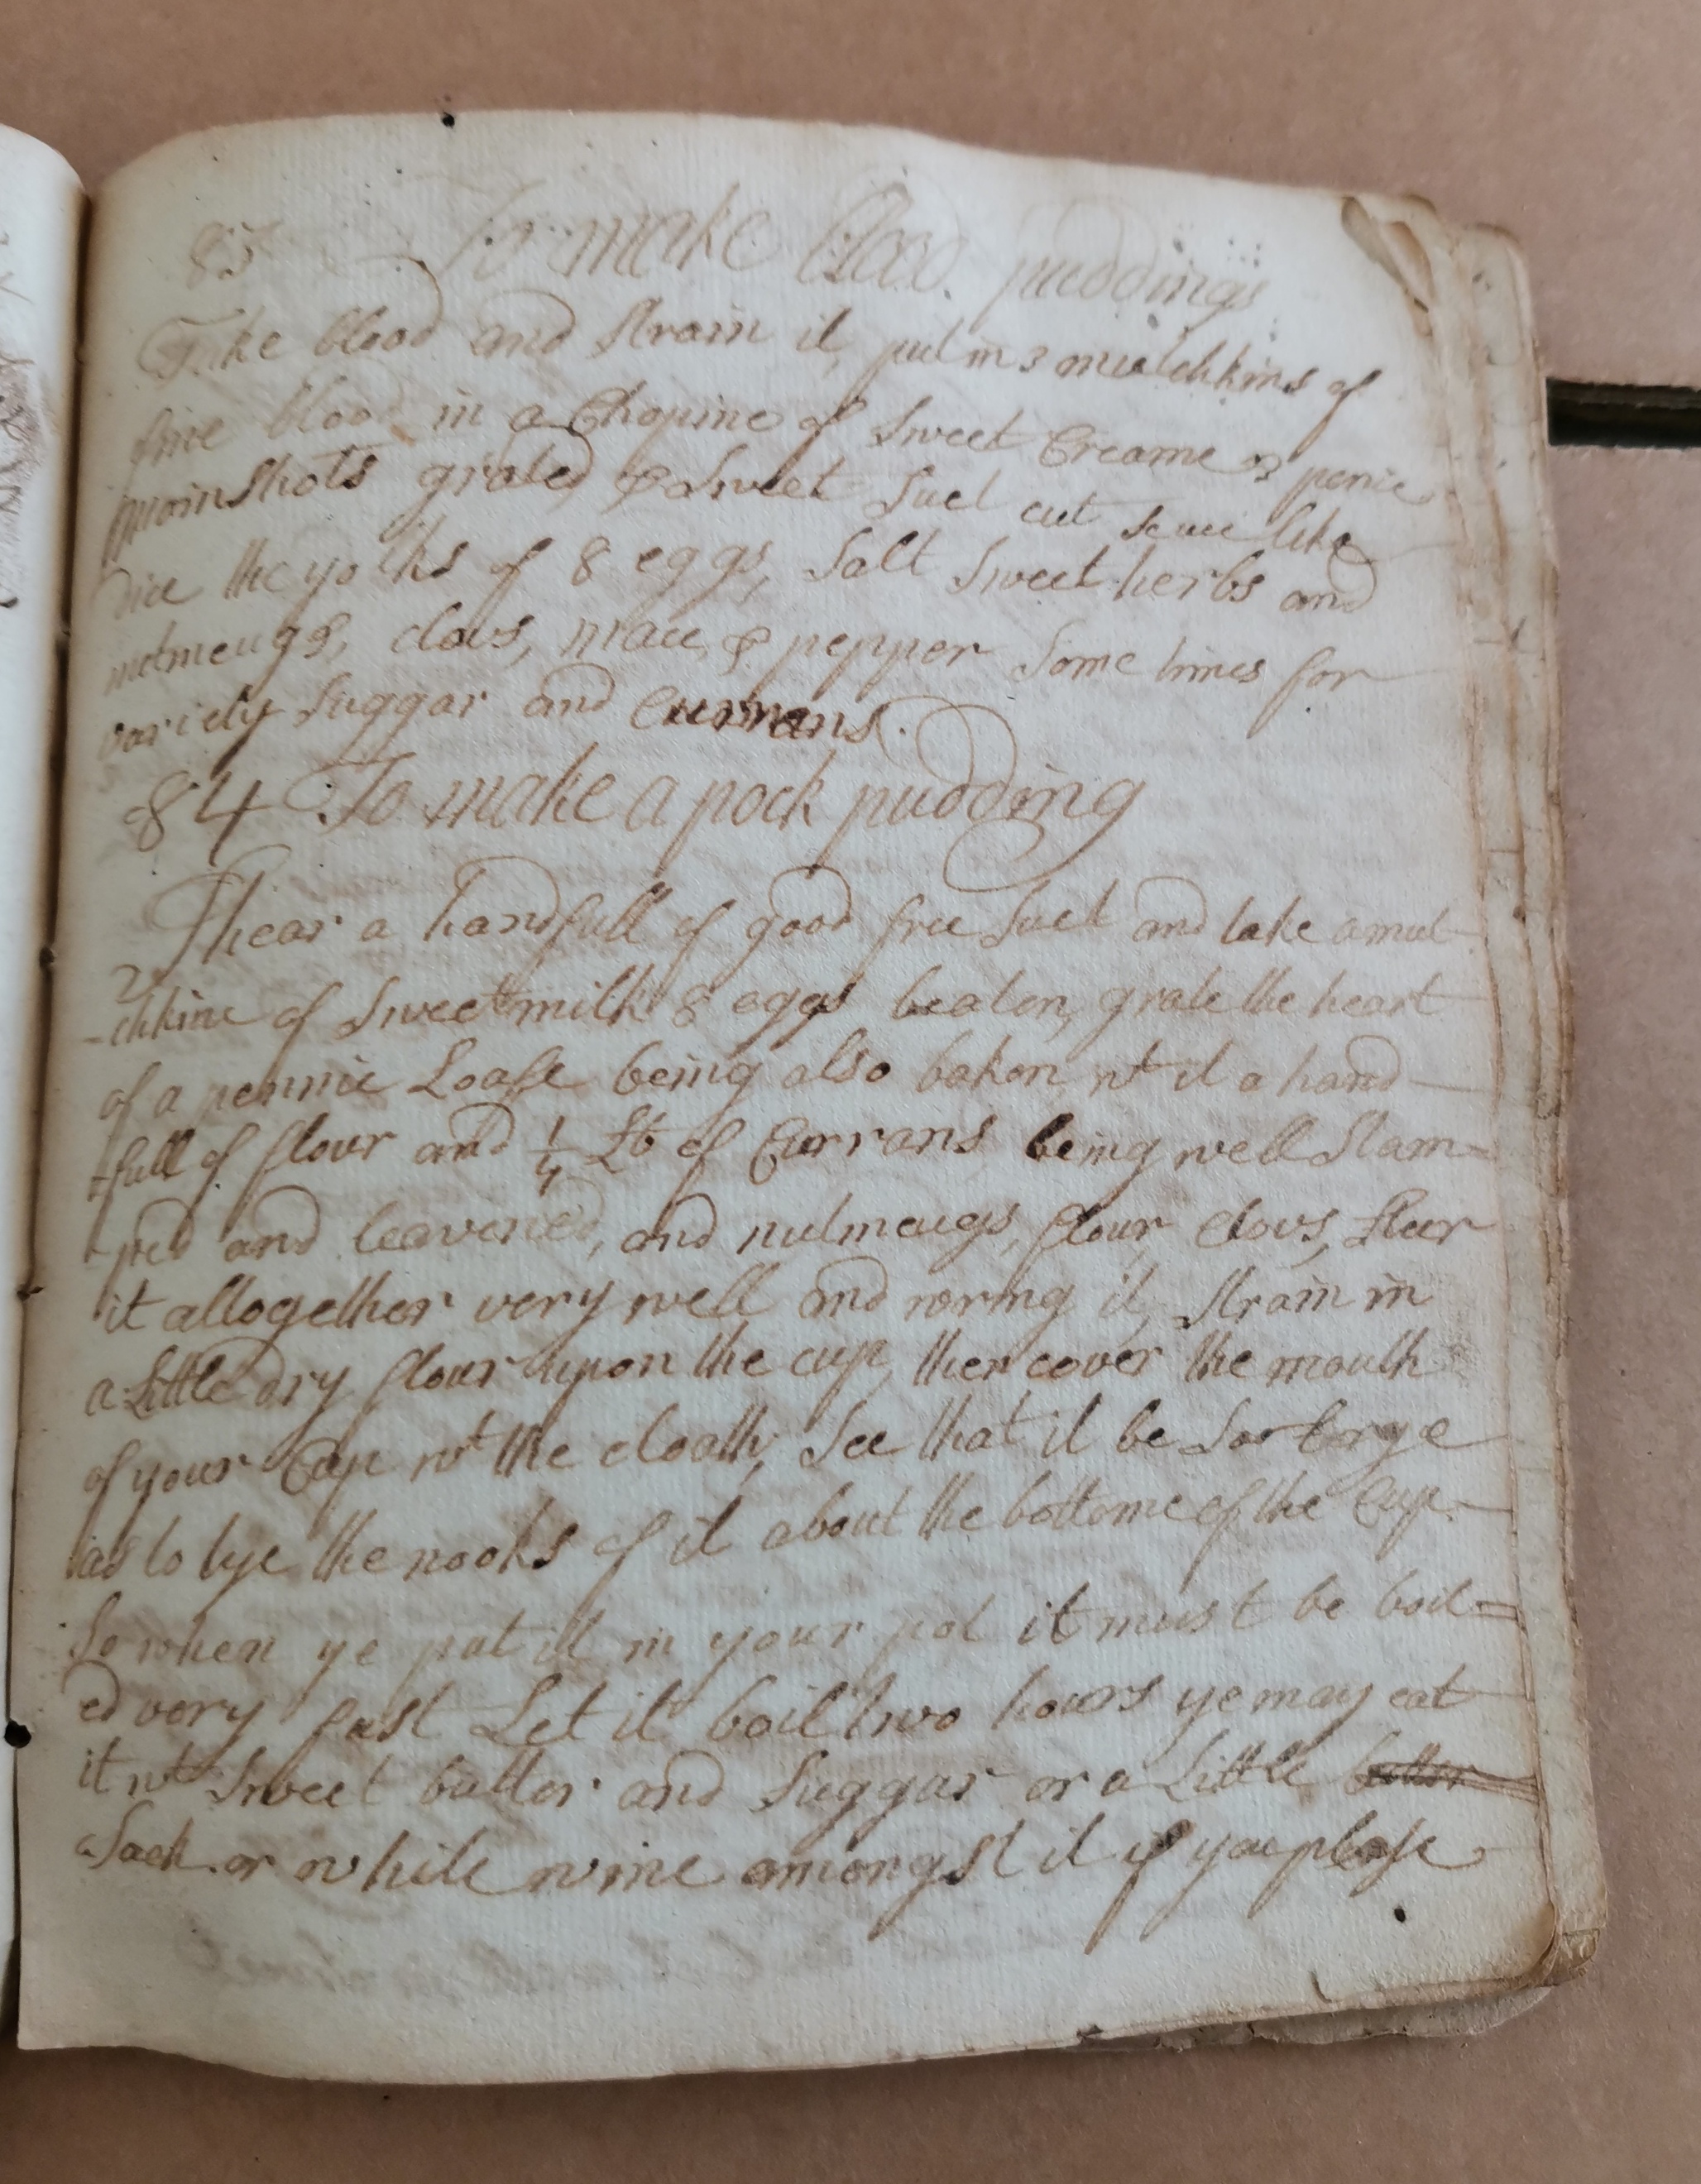 83 To make blood puddings
Take blood and strain it, put in 3 mutchkins of
fine blood in a Chopine of Sweet Creame 3 penie
mainshots grated & Sweet Suet cut like
dice the yolks of 8 eggs, Salt Sweet herbs and
nutmeugs, clovs, mace, & pepper Some times for
variety Suggar and Currans.
84 To make a pock pudding
Shear a handfull of good free Suet and take a mut
-chkine of Sweet milk 8 eggs beaten, grate the heart
of a pennie Loafe being also baken, wt it a hand
-full of flour and 1/4 lb of Currans being well Stam=
-ped and leavened, and nutmeugs, flour, clovs, Steer
it altogether very well and wring it, strain in
a Little dry flour upon the cup, then cover the mouth
of your Cap wt the cloath, See that it be So large
as to tye the nooks of it about the bottome of the Cup.
So when ye put it in your pot it must be boil=
ed very fast Let it boil two hours ye may eat
it wt Sweet butter and Suggar or a Little butter
Sack or white wine amongst it if you please